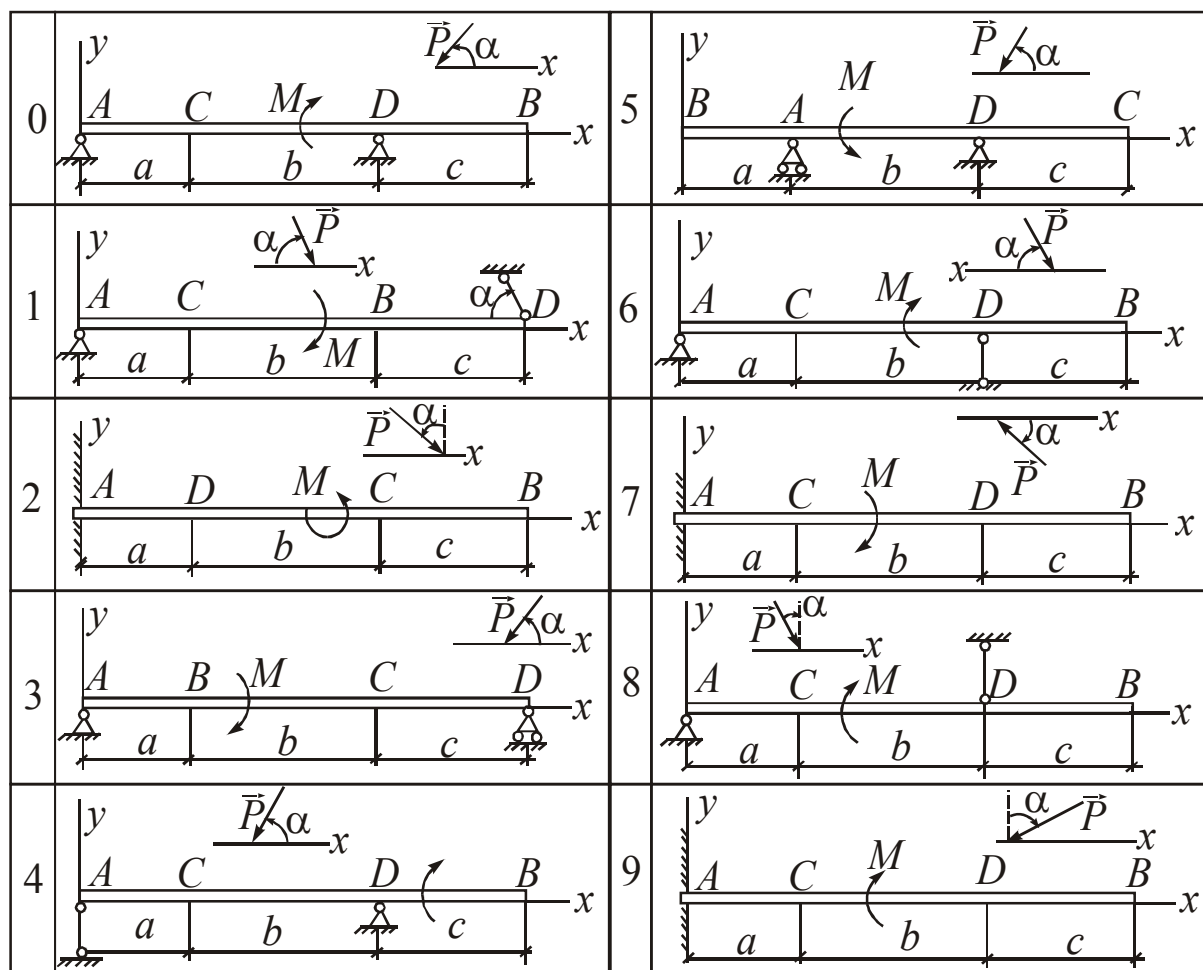 0 y P⃗ α x
A C M D B x
a b c
5 P⃗ α
y B A M D C x
a b c
1 y α P⃗ x
A C B α D x
M
a b c
6 y α P⃗ x
A C M D B x
a b c
2 y P⃗ α x
A D M C B x
a b c
7 y x α P⃗
A C M D B x
a b c
3 y P⃗ α x
A B M C D x
a b c
8 y P⃗ α x
A C M D B x
a b c
4 y P⃗ α x
A C D B x
a b c
9 y α P⃗ x
A C M D B x
a b c